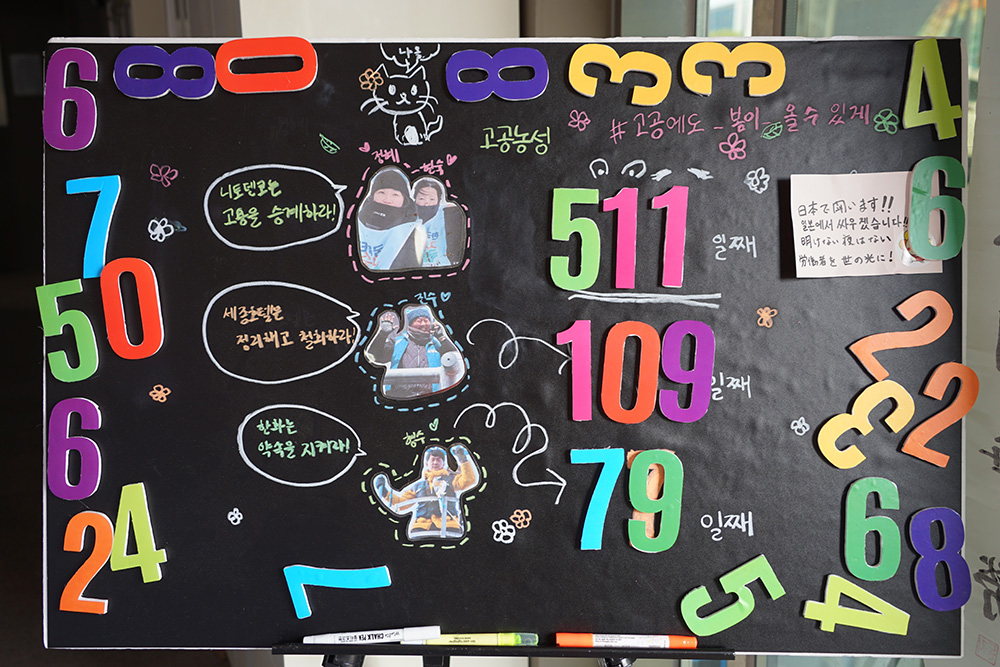 6 8 0 8 3 3 4
나옹
고공농성
#고공에도_봄이_올 수 있게
정혜
현숙
니토덴코는
고용을 승계하라!
511 일째
日本で闘います!!
일본에서 싸우겠습니다!!
明けない夜はない
労働者を世の光に!
6
7
0
5
진수
세종호텔은
정리해고 철회하라!
109 일째
2
2
3
6
형수
한화는
약속을 지켜라!
79 일째
6
8
2 4
7
5
4
CHALK PEN